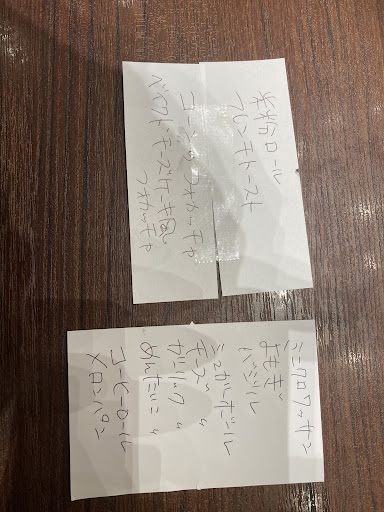 米粉ロール
フレンチトースト
フォカッチャ
ベイクドチーズケーキ風
フォカッチャ
ミニクロワッサン
よもぎ
バジル
シュガーボール
チーズ 〃
ガーリック 〃
めんたいこ 〃
コーヒーロール
メロンパン